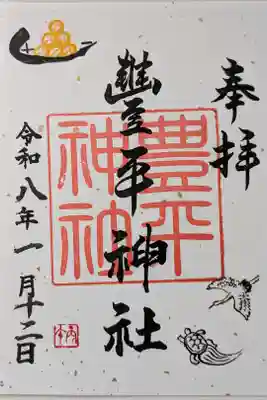 奉拝
豐平神社
豊平神社
令和八年一月十二日
丙午